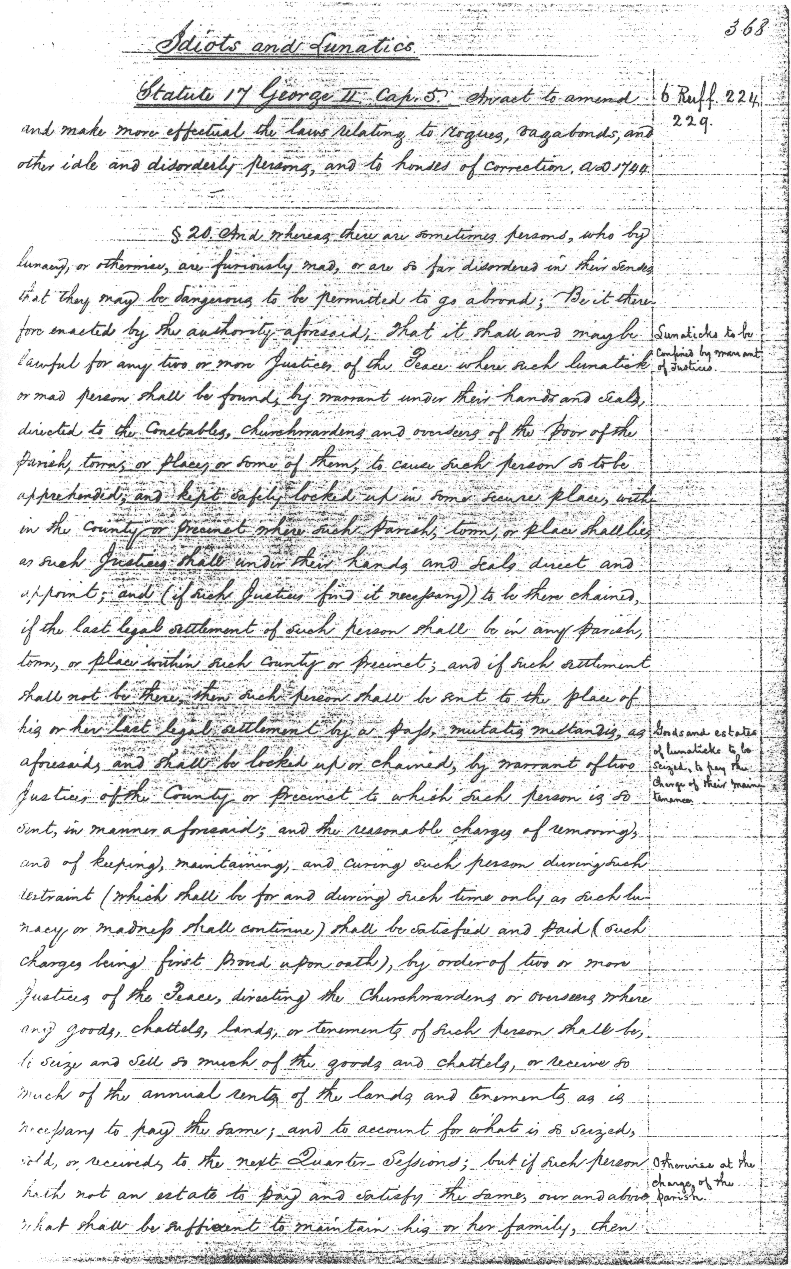 368
Idiots and Lunatics
Statute 17 George II. Cap. 5. An act to amend
6 Ruff. 224,
229.
and make more effectual the laws relating to rogues, vagabonds, and
other idle and disorderly persons, and to houses of correction. AD 1744.
§ 20. And whereas there are sometimes persons, who by
lunacy, or otherwise, are furiously mad, or are so far disordered in their senses
that they may be dangerous to be permitted to go abroad; Be it there-
fore enacted by the authority aforesaid, That it shall and may be
lawful for any two or more Justices of the Peace where such lunatick
Lunaticks to be
confined by warrant
of Justices.
or mad person shall be found, by warrant under their hands and seals,
directed to the Constables, Churchwardens and overseers of the Poor of the
Parish, town, or place, or some of them, to cause such person so to be
apprehended, and kept safely locked up in some secure place, with
in the County or precinct where such Parish, town, or place shall lie,
as such Justices shall under their hands and seals direct and
appoint; and (if such Justices find it necessary) to be there chained,
if the last legal settlement of such person shall be in any Parish,
town, or place within such County or Precinct; and if such settlement
shall not be there, then such person shall be sent to the place of
his or her last legal settlement by a pass, mutatis mutandis, as
Goods and estates
of lunaticks to be
seized, to pay the
charge of their main-
tenance
aforesaid, and shall be locked up or chained, by warrant of two
Justices of the County or Precinct to which such person is so
sent, in manner aforesaid; and the reasonable charges of removing,
and of keeping, maintaining, and curing such person during such
restraint (which shall be for and during such time only as such lu-
nacy or madness shall continue) shall be satisfied and paid (such
charges being first proved upon oath), by order of two or more
Justices of the Peace, directing the Churchwardens or overseers where
any goods, chattels, lands, or tenements of such person shall be,
to seize and sell so much of the goods and chattels, or receive so
much of the annual rents of the lands and tenements as is
necessary to pay the same; and to account for what is so seized,
sold, or received, to the next Quarter-Sessions; but if such person
Otherwise at the
charge of the
parish.
hath not an estate to pay and satisfy the same, our and above
what shall be sufficent to maintain his or her family, then